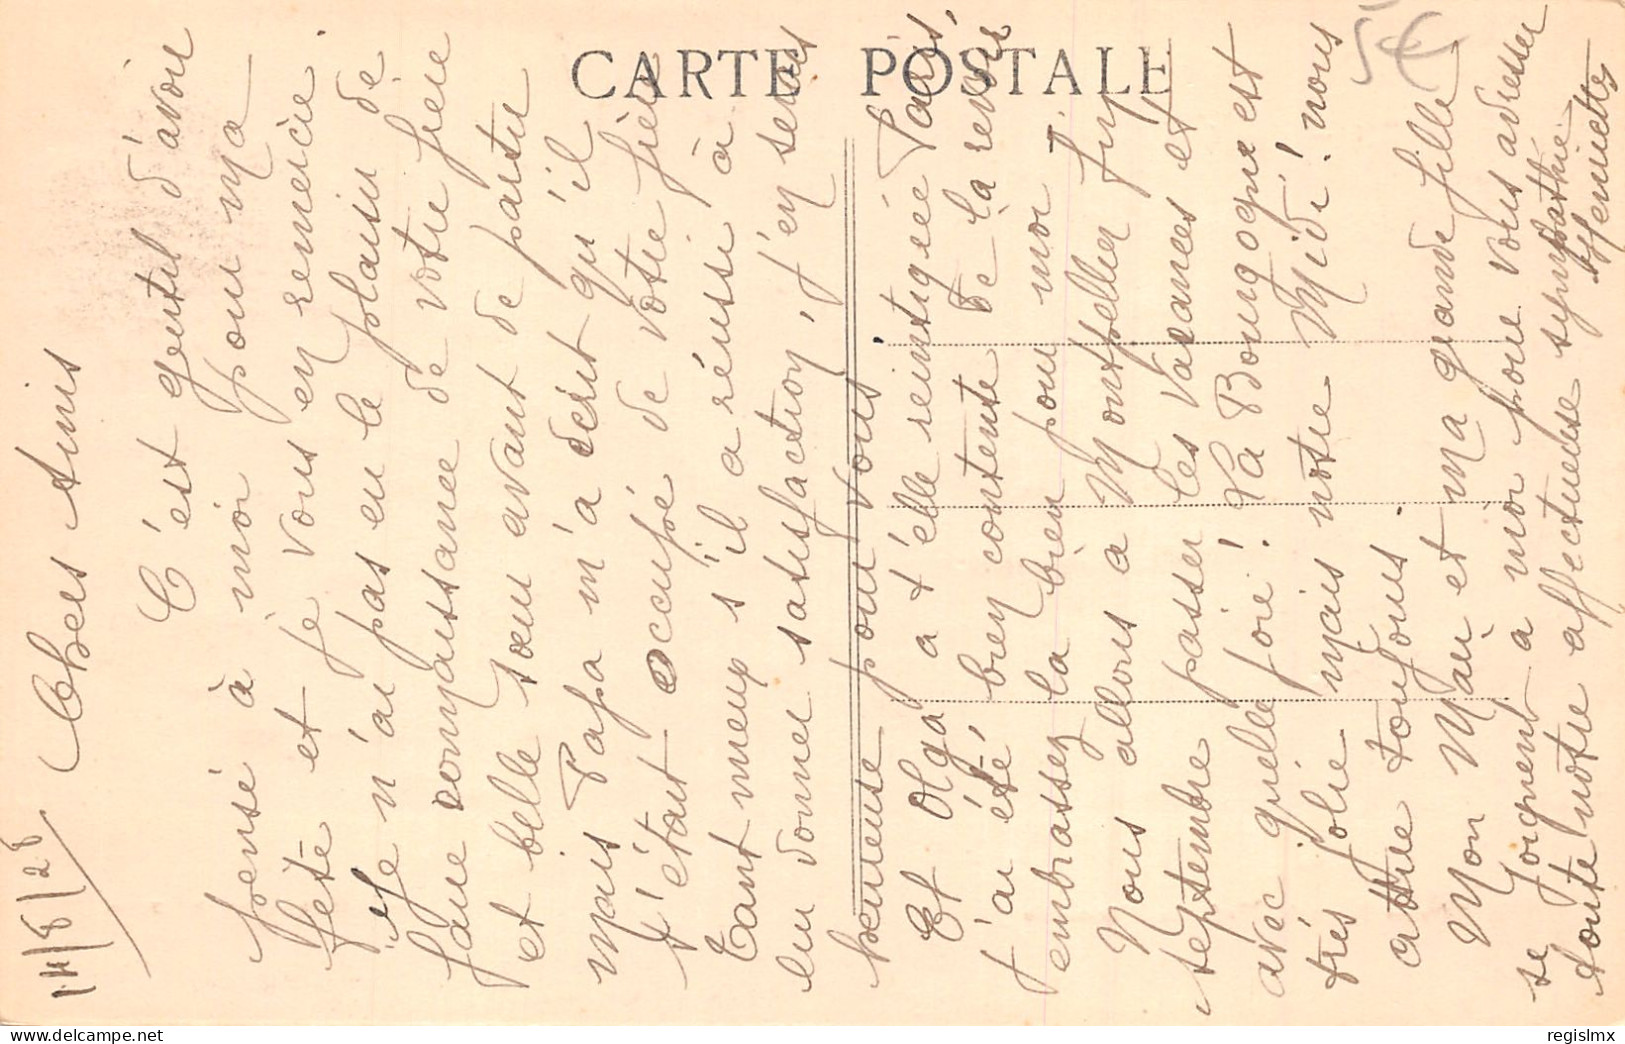 CARTE POSTALE
5€
14/8/28
Chers Amis
C'est gentil d'avoir
pensé à moi pour ma
fête et je vous en remercie
Je n'ai pas eu le plaisir de
faire connaissance de votre frère
et belle sœur avant de partir
mais Papa m'a écrit qu'il
s'était occupé de votre frère
Tant mieux s'il a réussi à
lui donner satisfaction, j'en serais
heureuse pour vous.
Et Olga a t'elle reintigrée Paris,
j'ai été bien contente de la revoir
embrassez la bien pour moi.
Nous allons à Montpellier fin
septembre passer les vacances et
avec quelle joie! La Bourgogne est
très jolie mais notre Midi! nous
attire toujours.
Mon Mari et ma grande fille
se joignent à moi pour vous adresser
toute notre affectueuse sympathie
regislmx